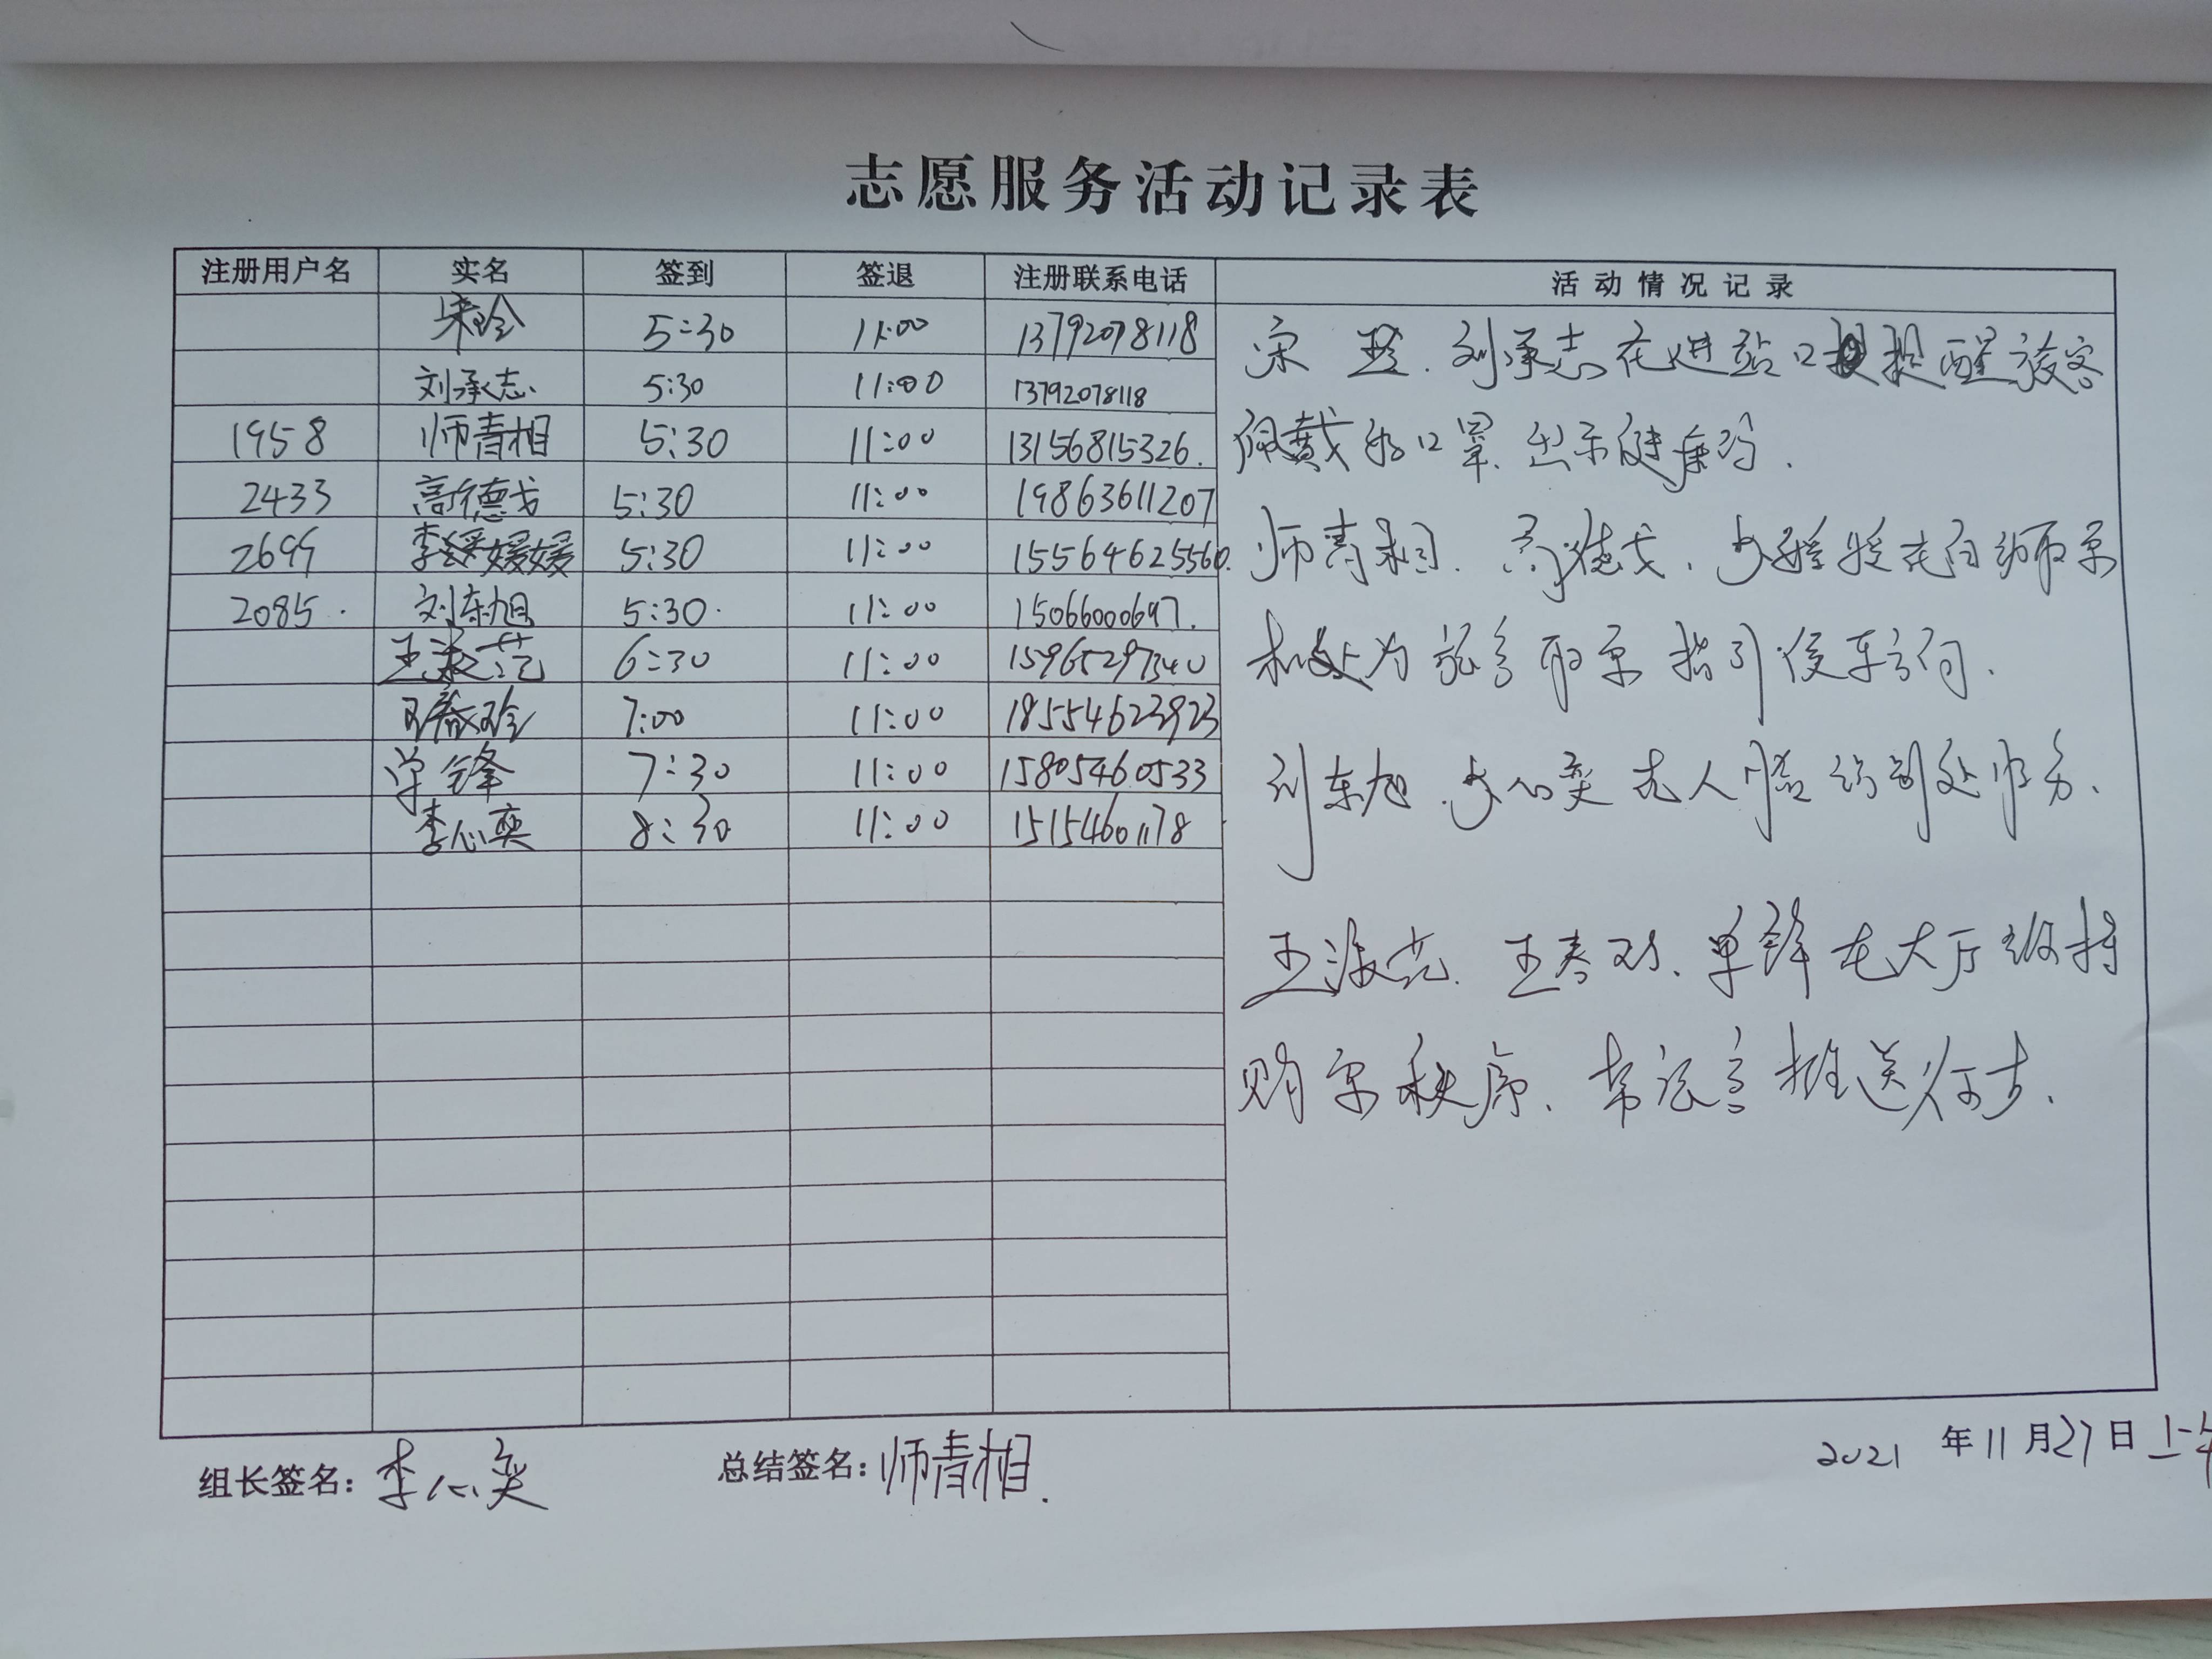 志愿服务活动记录表
注册用户名 实名 签到 签退 注册联系电话 活动情况记录
宋玲 5:30 11:00 13792078118
刘承志 5:30 11:00 13792078118
1958 师青相 5:30 11:00 13156815326.
2433 高德戈 5:30 11:00 19863611207
2699 李媛媛 5:30 11:00 15564625560.
2085. 刘东旭 5:30. 11:00 15066000697.
王淑范 6:30 11:00 15965297340
王春玲 7:00 11:00 18554623923
单锋 7:30 11:00 15805460533
李心奕 8:30 11:00 15154601178
宋玲.刘承志在进站口提醒旅客
佩戴好口罩、出示健康码.
师青相.高德戈.李媛媛在自动取票
机处为旅客取票指引候车方向.
刘东旭.李心奕在人脸识别处服务、
王淑范.王春玲、单锋在大厅维持
购票秩序、帮旅客推送行李.
组长签名：李心奕
总结签名：师青相.
2021年11月27日上午